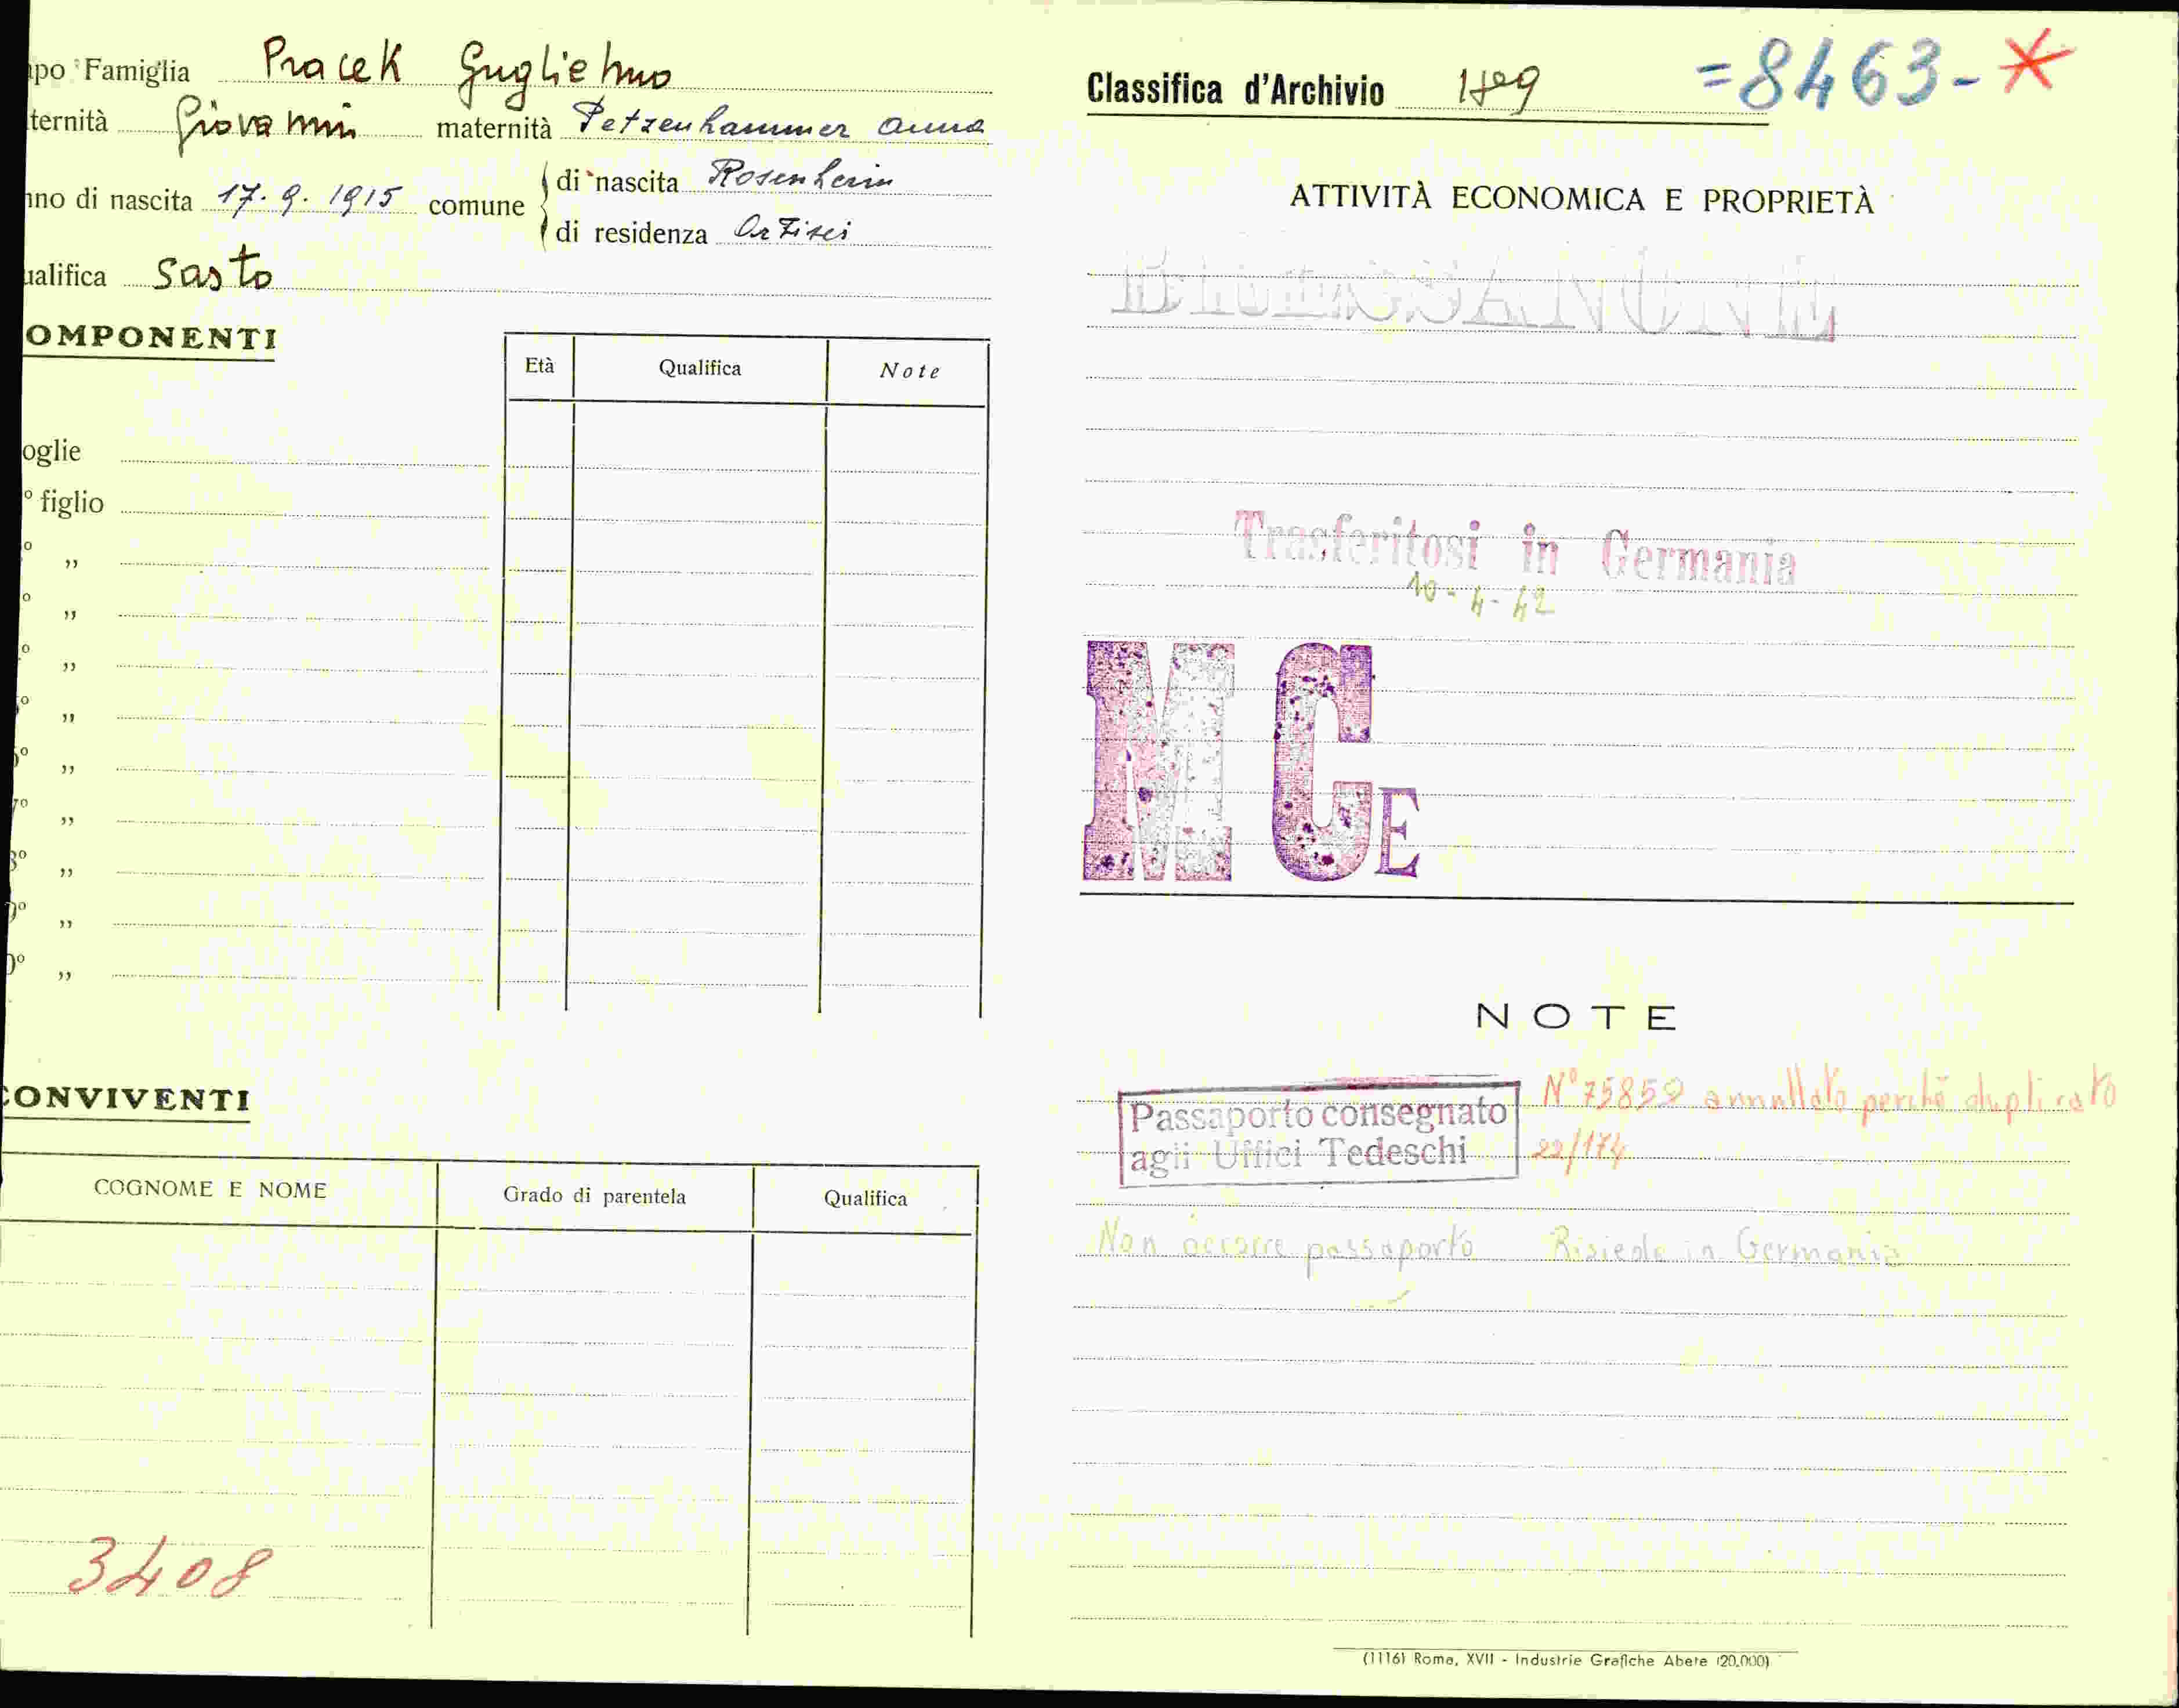 po Famiglia Pracek Guglielmo
ternità Giovanni maternità Petzenhammer Anna
nno di nascita 17. 9. 1915 comune
di nascita Rosenheim
di residenza Ortisei
ualifica Sasto
OMPONENTI
Età Qualifica Note
oglie
º figlio
º „
º „
º „
º „
º „
7º „
8º „
9º „
0º „
CONVIVENTI
COGNOME E NOME Grado di parentela Qualifica
3408
Classifica d'Archivio =8463-*
ATTIVITÀ ECONOMICA E PROPRIETÀ
Trasferitosi in Germania
10-4-42
M G E
NOTE
Passaporto consegnato
agli Uffici Tedeschi
Nº 75859 annullato perchè duplicato
22/174
Non occorre passaporto Risiede in Germania
(1116) Roma, XVII - Industrie Grafiche Abete (20.000)